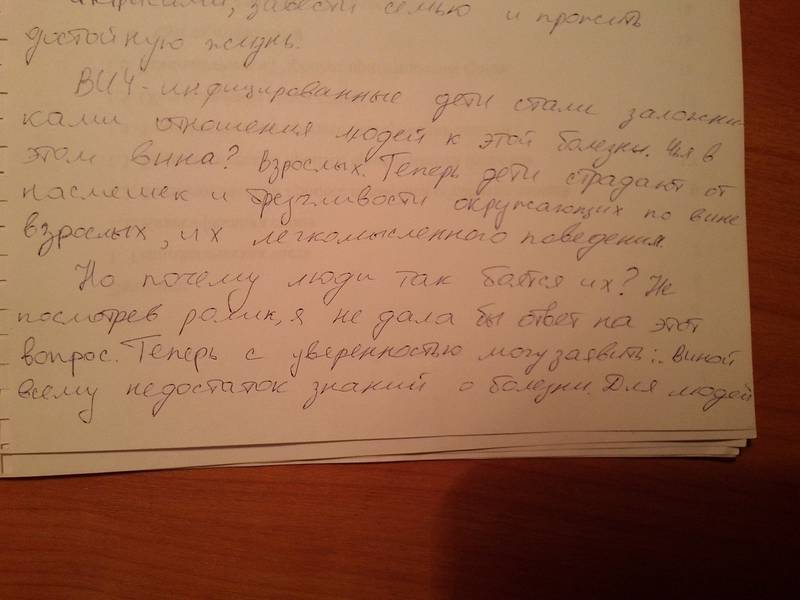 завести семью и прожить
достойную жизнь.
ВИЧ-инфицированные дети стали заложни
ками отношения людей к этой болезни. Чья в
этом вина? Взрослых. Теперь дети страдают от
насмешек и брезгливости окружающих по вине
взрослых, их легкомысленного поведения.
Но почему люди так боятся их? Не
посмотрев ролик, я не дала бы ответ на этот
вопрос. Теперь с уверенностью могу заявить: виной
всему недостаток знаний о болезни. Для людей